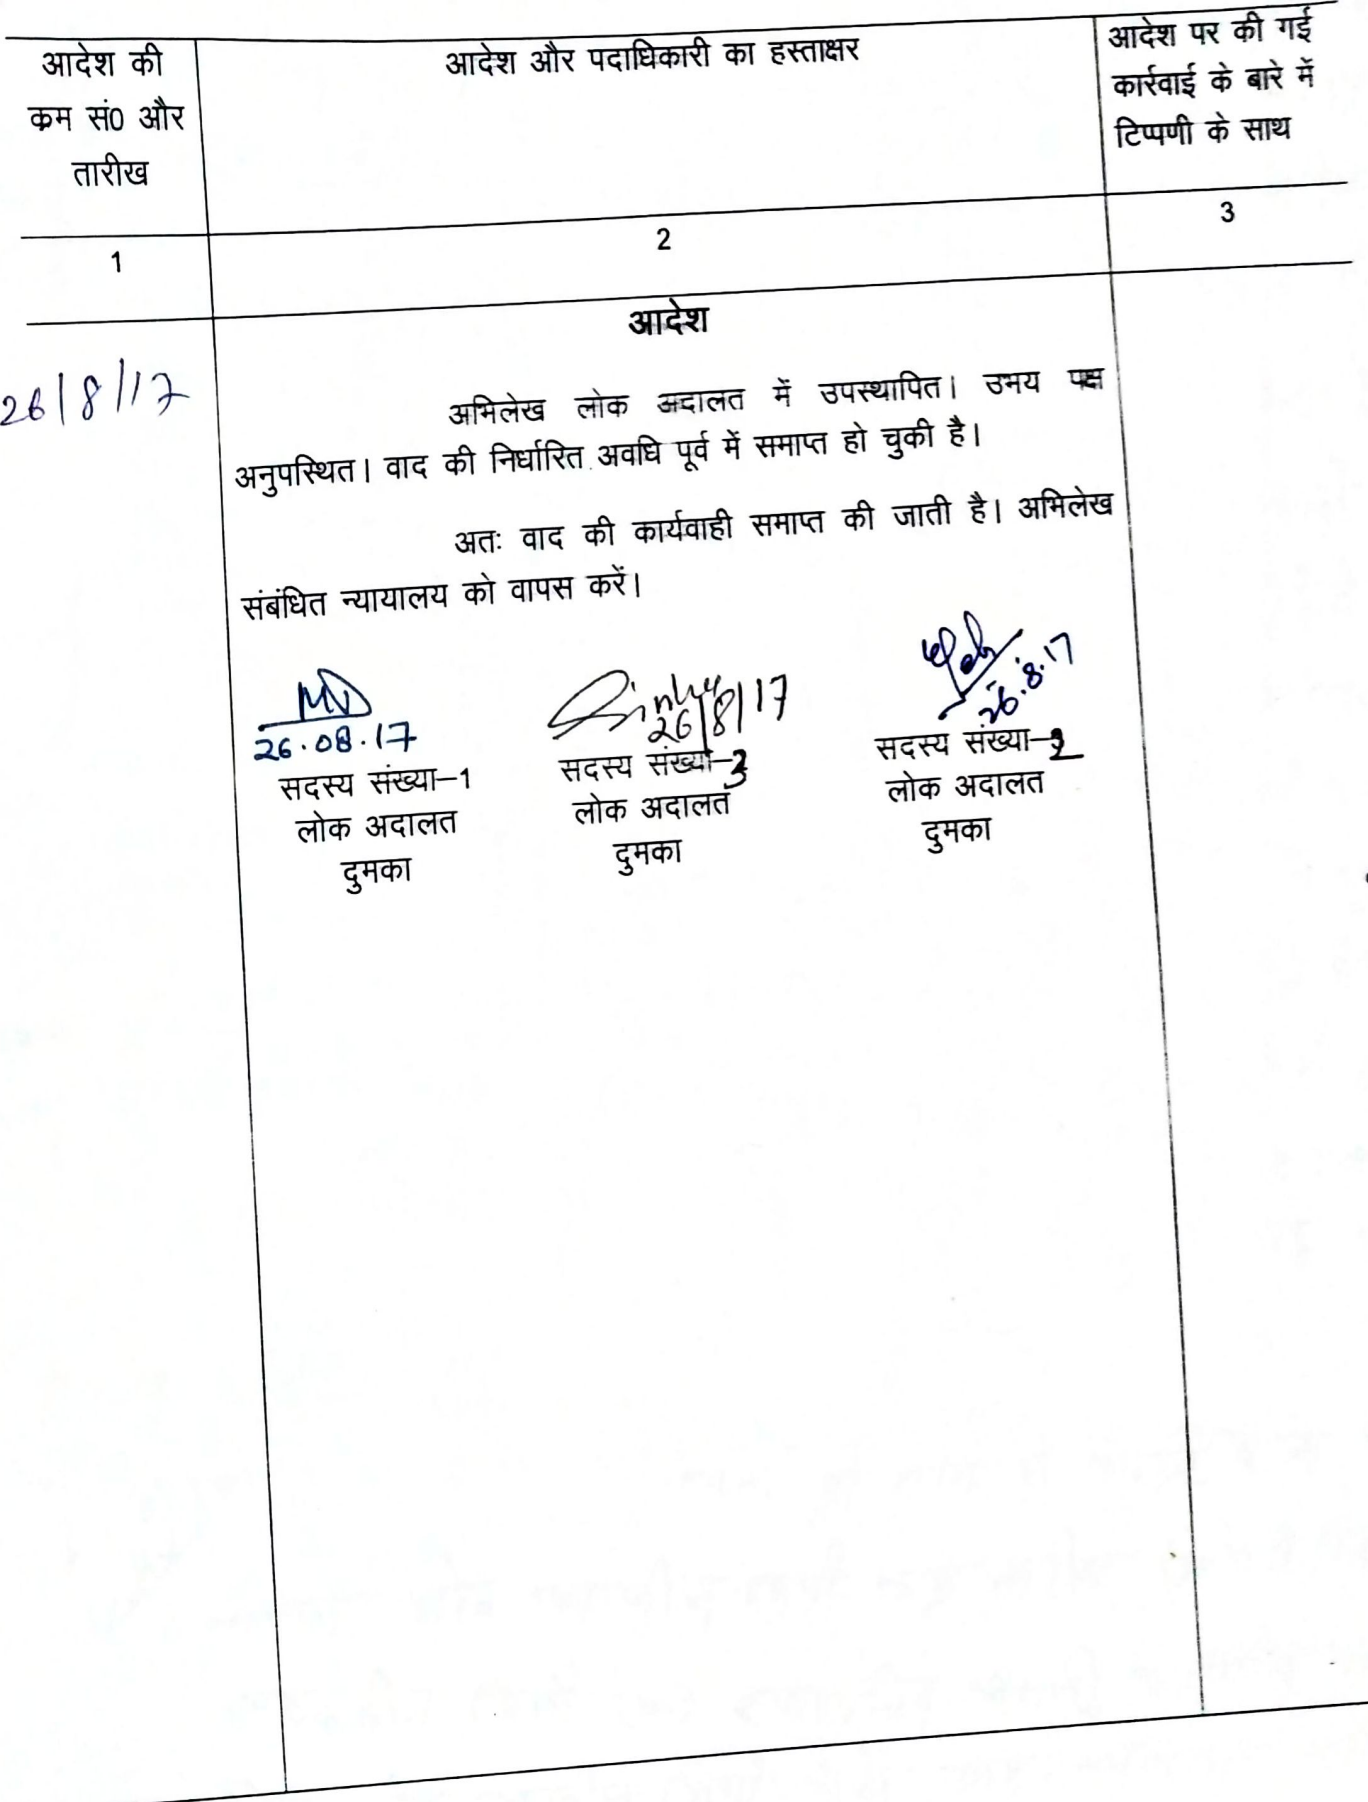 आदेश की
क्रम सं0 और
तारीख
आदेश और पदाधिकारी का हस्ताक्षर
आदेश पर की गई
कार्रवाई के बारे में
टिप्पणी के साथ
1
2
3
26/8/17
आदेश
अभिलेख लोक अदालत में उपस्थापित। उभय पक्ष
अनुपस्थित। वाद की निर्धारित अवधि पूर्व में समाप्त हो चुकी है।
अतः वाद की कार्यवाही समाप्त की जाती है। अभिलेख
संबंधित न्यायालय को वापस करें।
26.08.17
सदस्य संख्या–1
लोक अदालत
दुमका
Sinha
26/8/17
सदस्य संख्या–3
लोक अदालत
दुमका
26.8.17
सदस्य संख्या–2
लोक अदालत
दुमका